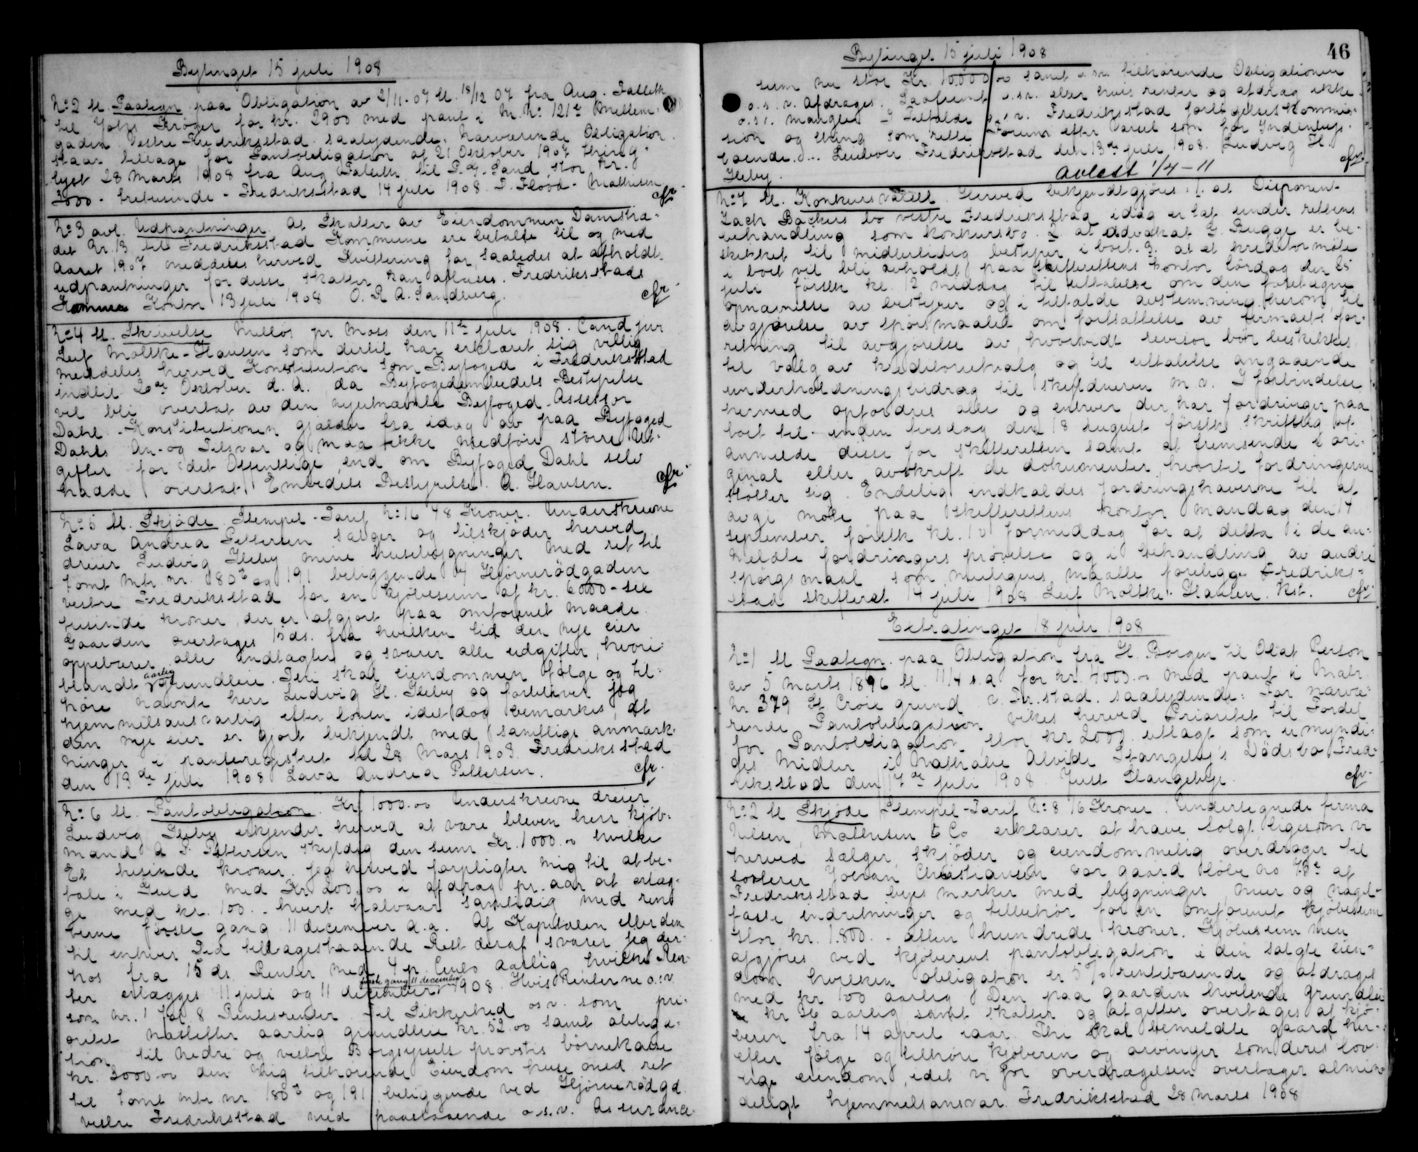 Bytinget 15 juli 1908
No 2 Bl. Paategn. paa Obligation av 2/11-07 Bl. 18/12 07 fra Aug. Falleth
til Kröger for kr. 2900 med pant i M. No 121c Mellem-
gaden Vestre Fredriksstad saalydende: Nærværende Obligation
staar tilbage for Pantobligation af 21 Oktober 1907 thing-
lyst 28 Marts 1908 fra Aug. Falleth til P. G. Sand stor Kr.
3000 - tretusinde - Fredriksstad 14 juli 1908. T. Flood - Mathisen.
No 3 avl. Udpantninger. At Skatter av Eiendommen Damstræ-
det Nr. 13 til Fredriksstad Kommune er betalte til og med
Aaret 1907 meddeles herved Kvittering for, saaledes at afholdte
udpantninger for disse skatter kan aflyses. Fredriksstads
Kontor 13 juli 1908 O. R. A. Sandberg.
No 4 Bl. Skrivelse Mellös pr. Moss den 11te juli 1908. Cand jur
Leif Moltke-Hansen som dertil har erklæret sig villig
meddeles herved Konstitution som Byfoged i Fredriksstad
indtil Oktober d. A. da Byfogedembedets Bestyrelse
vil bli overtat av den nyutnævnte Byfoged, Assessor
Dahl. Konstitutionen gjælder fra idag av paa Byfoged
Dahls An- og Tilsvar og maa ikke medföre större Ut-
gifter for det Offentlige end om Byfoged Dahl selv
hadde overtat Embedets Bestyrelse. A. Hansen.
No 5 Bl. Skjöde Stempel-Tarif No 16 48 Kroner. Underskrevne
Lava Andrea Pettersen sælger og tilskjöder herved
dreier Ludvig Heeby mine husebygninger med ret til
tomt Mtr. nr. 180 b og 191 beliggende i Hjörnerödgaden
vestre Fredriksstad for en kjöbesum af kr. 6000 - sex
tusinde kroner, der er afgjort paa omforenet maade.
Gaarden overtages 15 ds. fra hvilken tid den nye eier
oppebærer alle indtægter og svarer alle udgifter, hvori-
blandt aarlig Grundleie. Thi skal eiendommen fölge og til-
höre nævnte herr Ludvig H. Heeby og forbliver jeg
hjemmelsansvarlig efter loven idet dog bemærkes, at
den nye eier er gjort bekjendt med samtlige anmærk-
ninger i panteregistret til 28 Mars 1908. Fredriksstad
den 13de juli 1908 Lava Andrea Pettersen.
No 6 Bl. Pantobligation. Kr. 1000.00 Underskrevne dreier
Ludvig Heeby erkjender herved at være bleven herr kjöb-
mand A. F. Pettersen skyldig den sum Kr. 1000.00 hvilke
Et tusinde kroner jeg herved forpligter mig til at be-
tale i Guld med Kr. 200.00 i afdrag pr. aar at erlæg-
ge med kr. 100.- hvert halvaar samtidig med rent-
erne förste gang 11 december d.a. Af Kapitalen eller den
til enhver Tid tilbagestaaende Rest deraf svarer jeg der-
hos fra 15 ds. Renter med 4 p. Cents aarlig, hvilke Ren-
ter erlægges 11 juli og 11 december første gang 11 december 1908. Hvis Renterne o.s.v.
som nr. 1 Side 8 Rentesrenter. Til Sikkerhed o.s.v. som pri-
oritet næstefter aarlig grundleie kr. 52.00 samt obliga-
tion til nedre og vestre Borgesyssels provstis börnekasse
kr. 3000.00 den mig tilhörende Eiendom huse med ret
til tomt mtr. nr. 180 b og 191 beliggende ved Hjörnerödgd.
vestre Fredriksstad med paastaaende o.s.v. Assurance-

Bytinget 15 juli 1908
46
sum nu stor Kr. 10,000.00 samt o.s.v. tilhörende Obligationen
o.s.v. Afdrages. Saafremt o.s.v. eller hvis renter og afdrag ikke
o.s.v. mangler. I Tilfælde o.s.v. Fredriksstad forligelseskommis-
sion og thing som rette Forum efter Varsel som for Indenbys-
boende. ... Ludvig Fredriksstad den 13de juli 1908. Ludvig H.
Heeby.
avlest 1/4-11
No 7 Bl. Konkursvarsel. Herved bekjendtgjöres: 1. at Disponent
Zach. Backers bo vestre Fredriksstad idag er tat under rettens
behandling som konkursbo. 2. at advokat H. Bugge er be-
skikket til midlertidig bestyrer i boet. 3. at et kreditormöte
i boet vil bli avholdt paa skifterettens kontor lördag den 25
juli förstk. kl. 12 middag til uttalelse om den foretagne
opnævnelse av bestyrer og i tilfælde avstemning herom, til
avgjörelse av spörsmaalet om fortsættelse av firmaets for-
retning til avgjörelse av hvorvidt revisor bör beskikkes,
til valg av kreditorutvalg og til uttalelse angaaende
underholdningsbidrag til skyldneren m.v. I forbindelse
hermed opfordres alle og enhver, der har fordringer paa
boet til - inden tirsdag den 18 august förstk. skriftlig at
anmelde disse for skifteretten samt at fremsende i ori-
ginal eller avskrift de dokumenter, hvortil fordringerne
stötter sig. Endelig indkaldes fordringshaverne til at
avgi möte paa skifterettens kontor mandag den 14
september förstk. kl. 10 formiddag for at delta i de an-
meldte fordringers prövelse og i behandling av andre
spörgsmaal som muligens maatte foreligge. Fredriks-
stad skifteret 14 juli 1908 Leif Moltke-Hansen, Kst.
Extratinget 18 juli 1908
No 1 Bl. Paategn. paa Obligation fra H. Borgen til Olaf Person
av 5 Marts 1896 Bl. 11/4 s.a. for kr. 4000.00 med pant i Matr.
Nr. 379 St. Croix grund v. Fr.stad. saalydende: For nærvæ-
rende Pantobligation vikes herved Prioritet til Fordel
for Pantobligation stor kr. 2000 utlagt som umyndi-
ges Midler i Mathalie Alvilde Stangebye's Dödsbo. Fred-
riksstad den 17de juli 1908. Just Stangebye.
No 2 Bl. Skjöde Stempel-Tarif No 8 16 Kroner. Undertegnede firma
Nilsen, Mathisen & Co erklærer at have solgt, ligesom vi
herved sælger, skjöder og eiendommelig overdrager til
sadlerer Johan Christiansen vor gaard Löbe No 78c af
Fredriksstad byes marker med bygninger mur og nagel-
faste indretninger og tilbehör for en omforenet kjöbesum
stor kr. 1.800.- atten hundrede kroner. Kjöbesummen
afgjöres ved kjöberens pantobligation i den solgte eien-
dom hvilken obligation er 5 % rentebærende og afdrages
med kr. 100 aarlig. Den paa gaarden hvilende grundleie
kr. 26 aarlig samt skatter og afgifter overtages af kjö-
beren fra 14 april iaar. Thi skal bemeldte gaard her-
efter fölge og tilhöre kjöberen og arvinger som deres lov-
lige eiendom, idet vi for overdragelsen overtager almin-
deligt hjemmelsansvar. Fredriksstad 28 Marts 1908